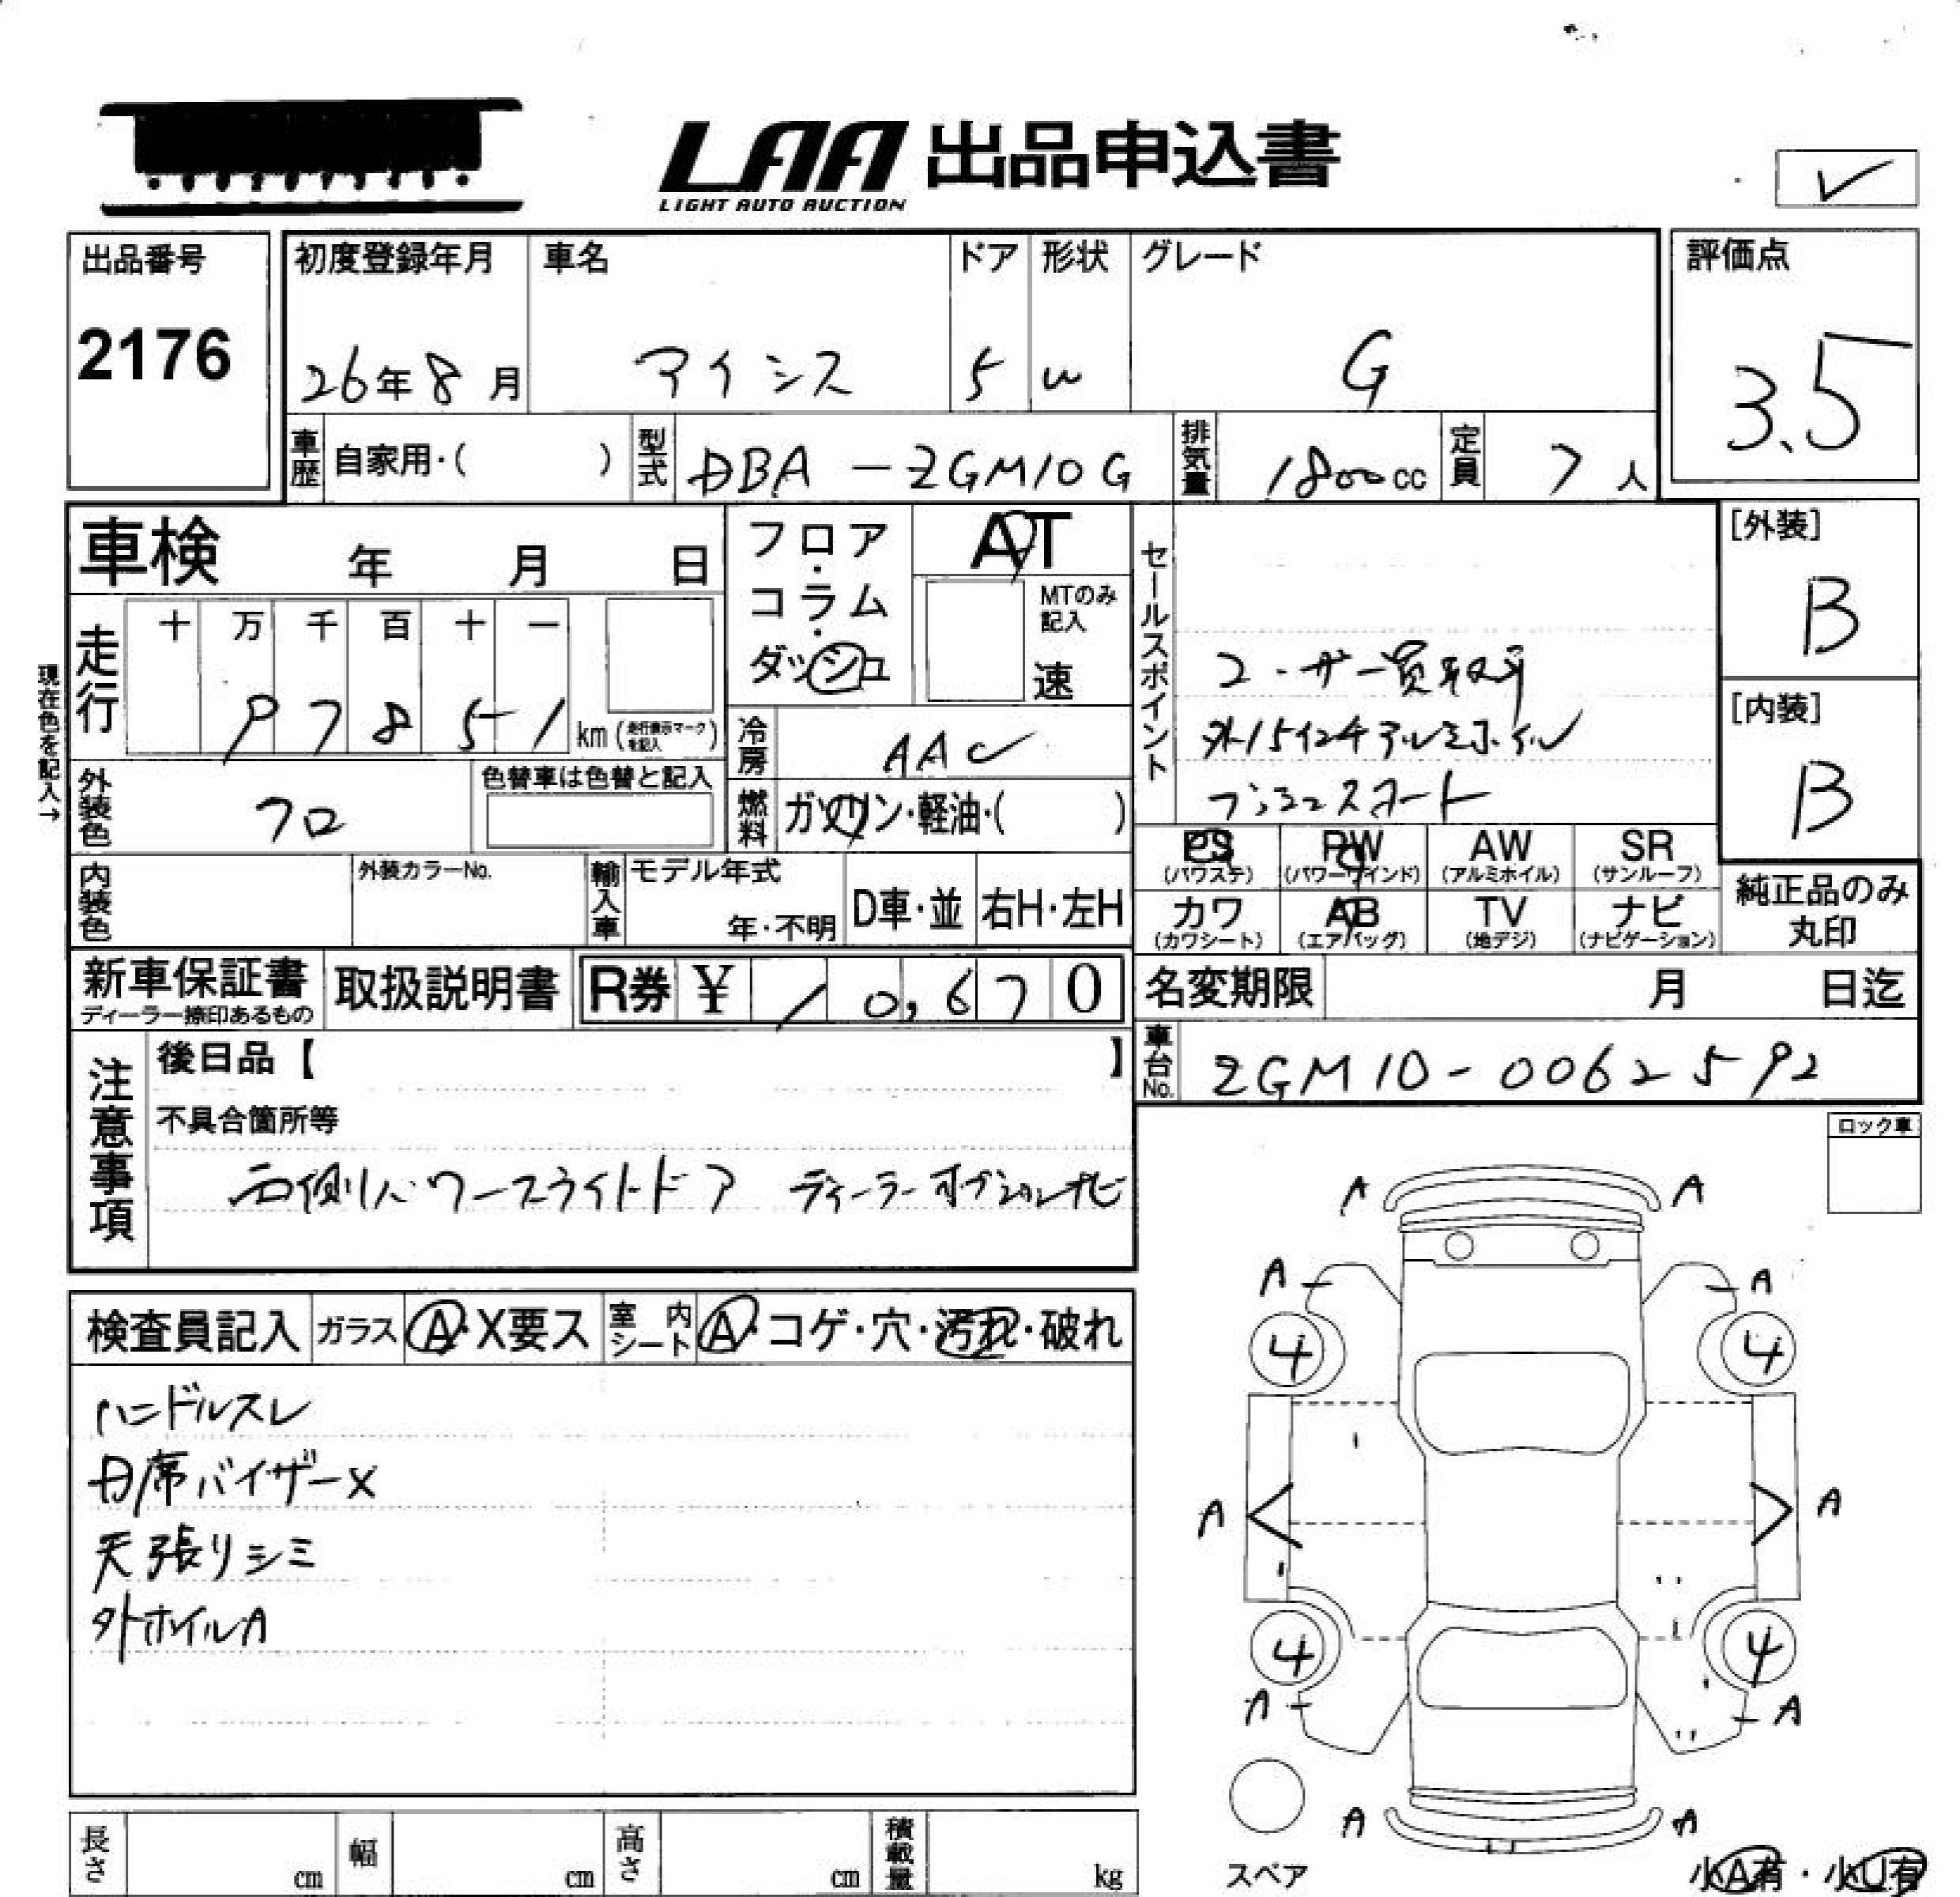 LAA 出品申込書
LIGHT AUTO AUCTION
✓
出品番号
2176
初度登録年月
26年8月
車名
アイシス
ドア
5
形状
W
グレード
G
評価点
3.5
車歴 自家用・( )
型式 DBA-ZGM10G
排気量 1800cc
定員 7人
車検 年 月 日
現在色を記入→
走行
十 万 千 百 十 一
97851
km(走行表示マークを記入)
フロア・コラム・ダッシュ
AT
MTのみ記入
速
冷房 AAC
燃料 ガソリン・軽油・( )
外装色 クロ
色替車は色替と記入
内装色
外装カラーNo.
輸入車
モデル年式
年・不明
D車・並
右H・左H
セールスポイント
ユーザー買取車
外15インチアルミホイル
プッシュスタート
[外装]
B
[内装]
B
PS (パワステ)
PW (パワーウインド)
AW (アルミホイル)
SR (サンルーフ)
カワ (カワシート)
AB (エアバッグ)
TV (地デジ)
ナビ (ナビゲーション)
純正品のみ丸印
新車保証書
ディーラー捺印あるもの
取扱説明書
R券 ¥ 10,670
名変期限 月 日迄
車台No. ZGM10-0062592
注意事項
後日品【 】
不具合箇所等
右側パワースライドドア ディーラーオプションナビ
ロック車
検査員記入
ガラス A・X要ス
室内シート A・コゲ・穴・汚れ・破れ
ハンドルスレ
日席バイザーX
天張りシミ
外ホイルA
A A
A A
4 4
A A
4 4
A A
A A
スペア
小A有・小U有
長さ cm
幅 cm
高さ cm
積載量 kg